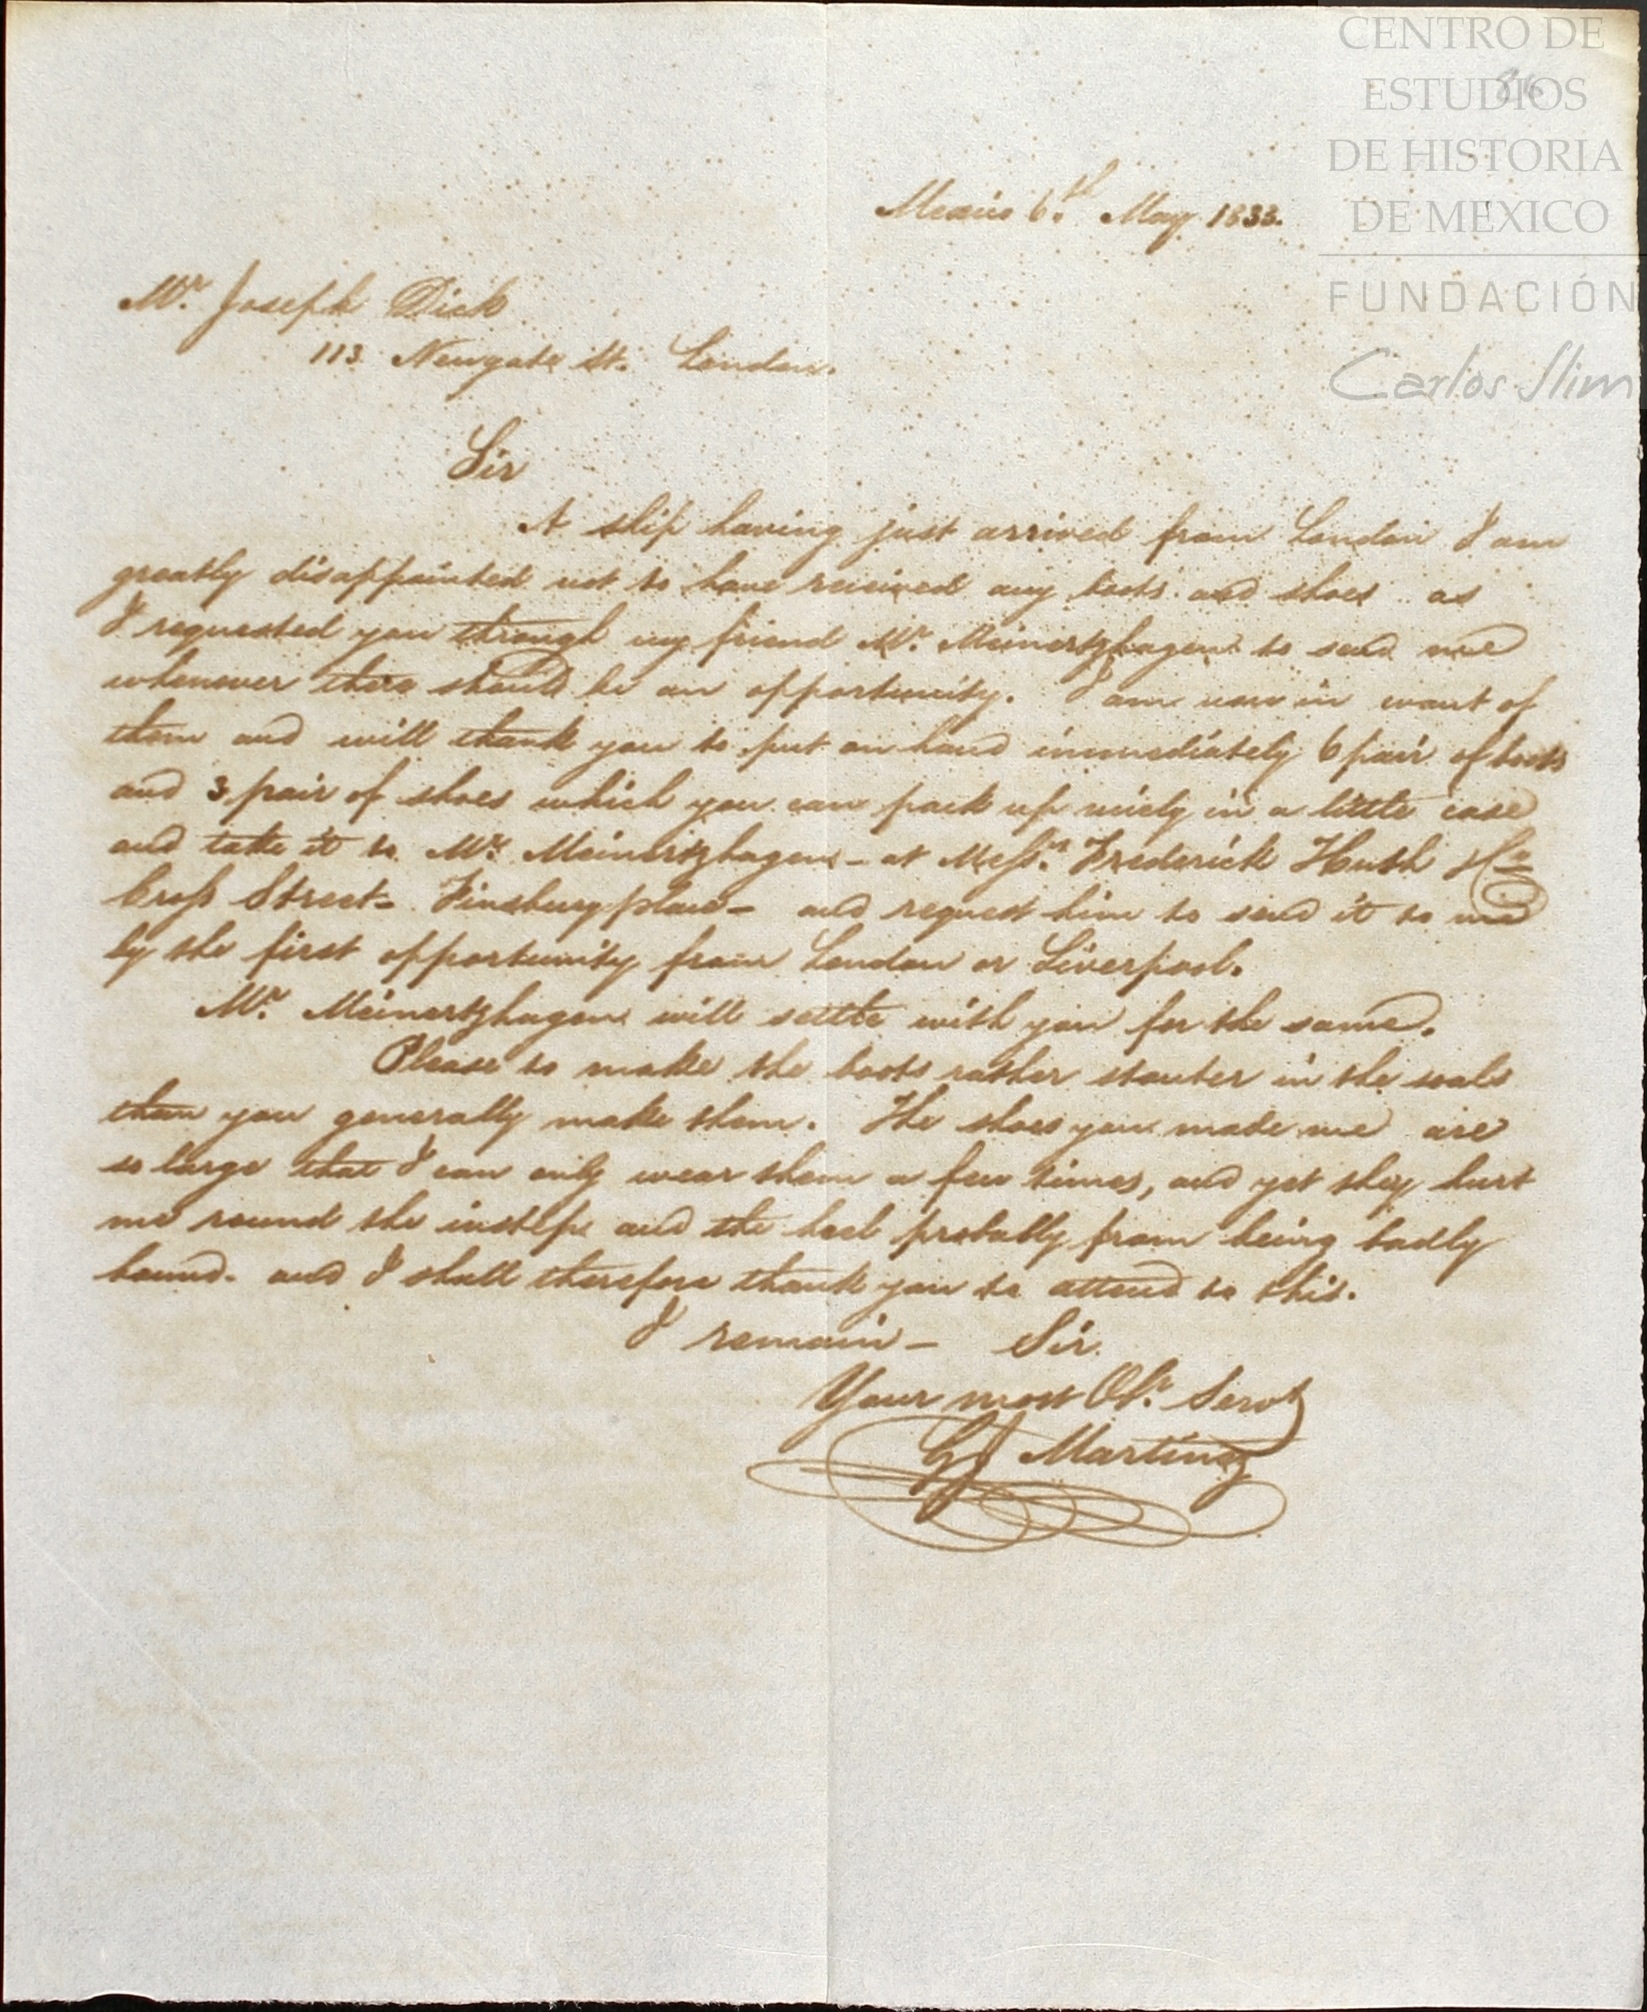 CENTRO DE
ESTUDIOS
DE HISTORIA
DE MEXICO
FUNDACIÓN
Carlos Slim
86
Mexico 6th May 1833.
Mr. Joseph Dick
113 Newgate St. London.
Sir
A ship having just arrived from London I am
greatly disappointed not to have received any boots and shoes as
I requested you through my friend Mr. Meinertzhagen to send me
whenever there should be an opportunity. I am now in want of
them and will thank you to put on hand immediately 6 pair of boots
and 3 pair of shoes which you can pack up nicely in a little case
and take it to Mr. Meinertzhagen – at Messrs. Frederick Huth &
Cross Street – Finsbury place – and request him to send it to me
by the first opportunity from London or Liverpool.
Mr. Meinertzhagen will settle with you for the same.
Please to make the boots rather stouter in the soals
than you generally make them. The shoes you made me are
so large that I can only wear them a few times, and yet they hurt
me round the instep and the heel probably from being badly
bound. and I shall therefore thank you to attend to this.
I remain – Sir.
Your most Ob. Servt
GJ Martinez